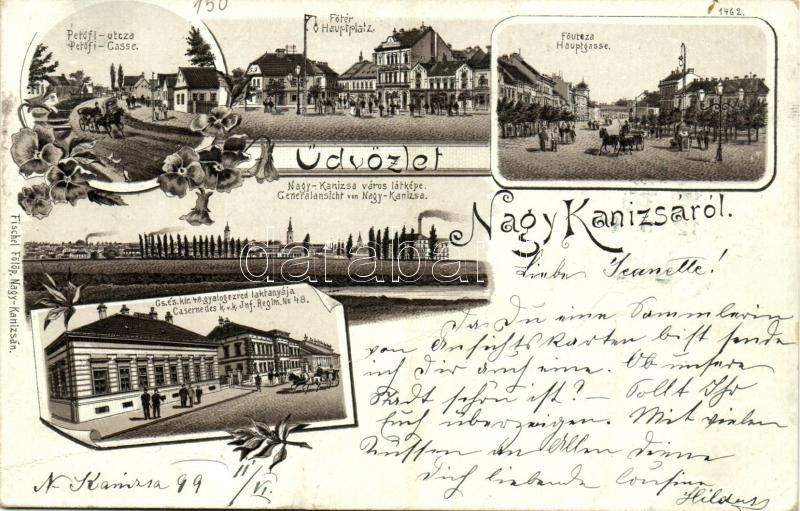 150
1462.
Petőfi-utcza
Petőfi-Gasse.
Főtér
Hauptplatz.
Főutcza
Hauptgasse.
Üdvözlet
Nagy-Kanizsa város látképe.
Generalansicht von Nagy-Kanizsa.
Nagy Kanizsáról.
Cs. és. kir. 48. gyalogezred laktanyája
Caserne des k. u. k. Inf. Regim. No 48.
Fischel Fülöp, Nagy-Kanizsán.
darabanth
Liebe Jeanette!
Da Du eine Sammlerin
von Ansichtskarten bist sende
ich Dir auch eine. Ob unsere
Stadt schön ist? – Sollt Ihr
Euch überzeigen. Mit vielen
Küssen an Allen deine
Dich liebende Cousine
N. Kanizsa 99 11/VI.